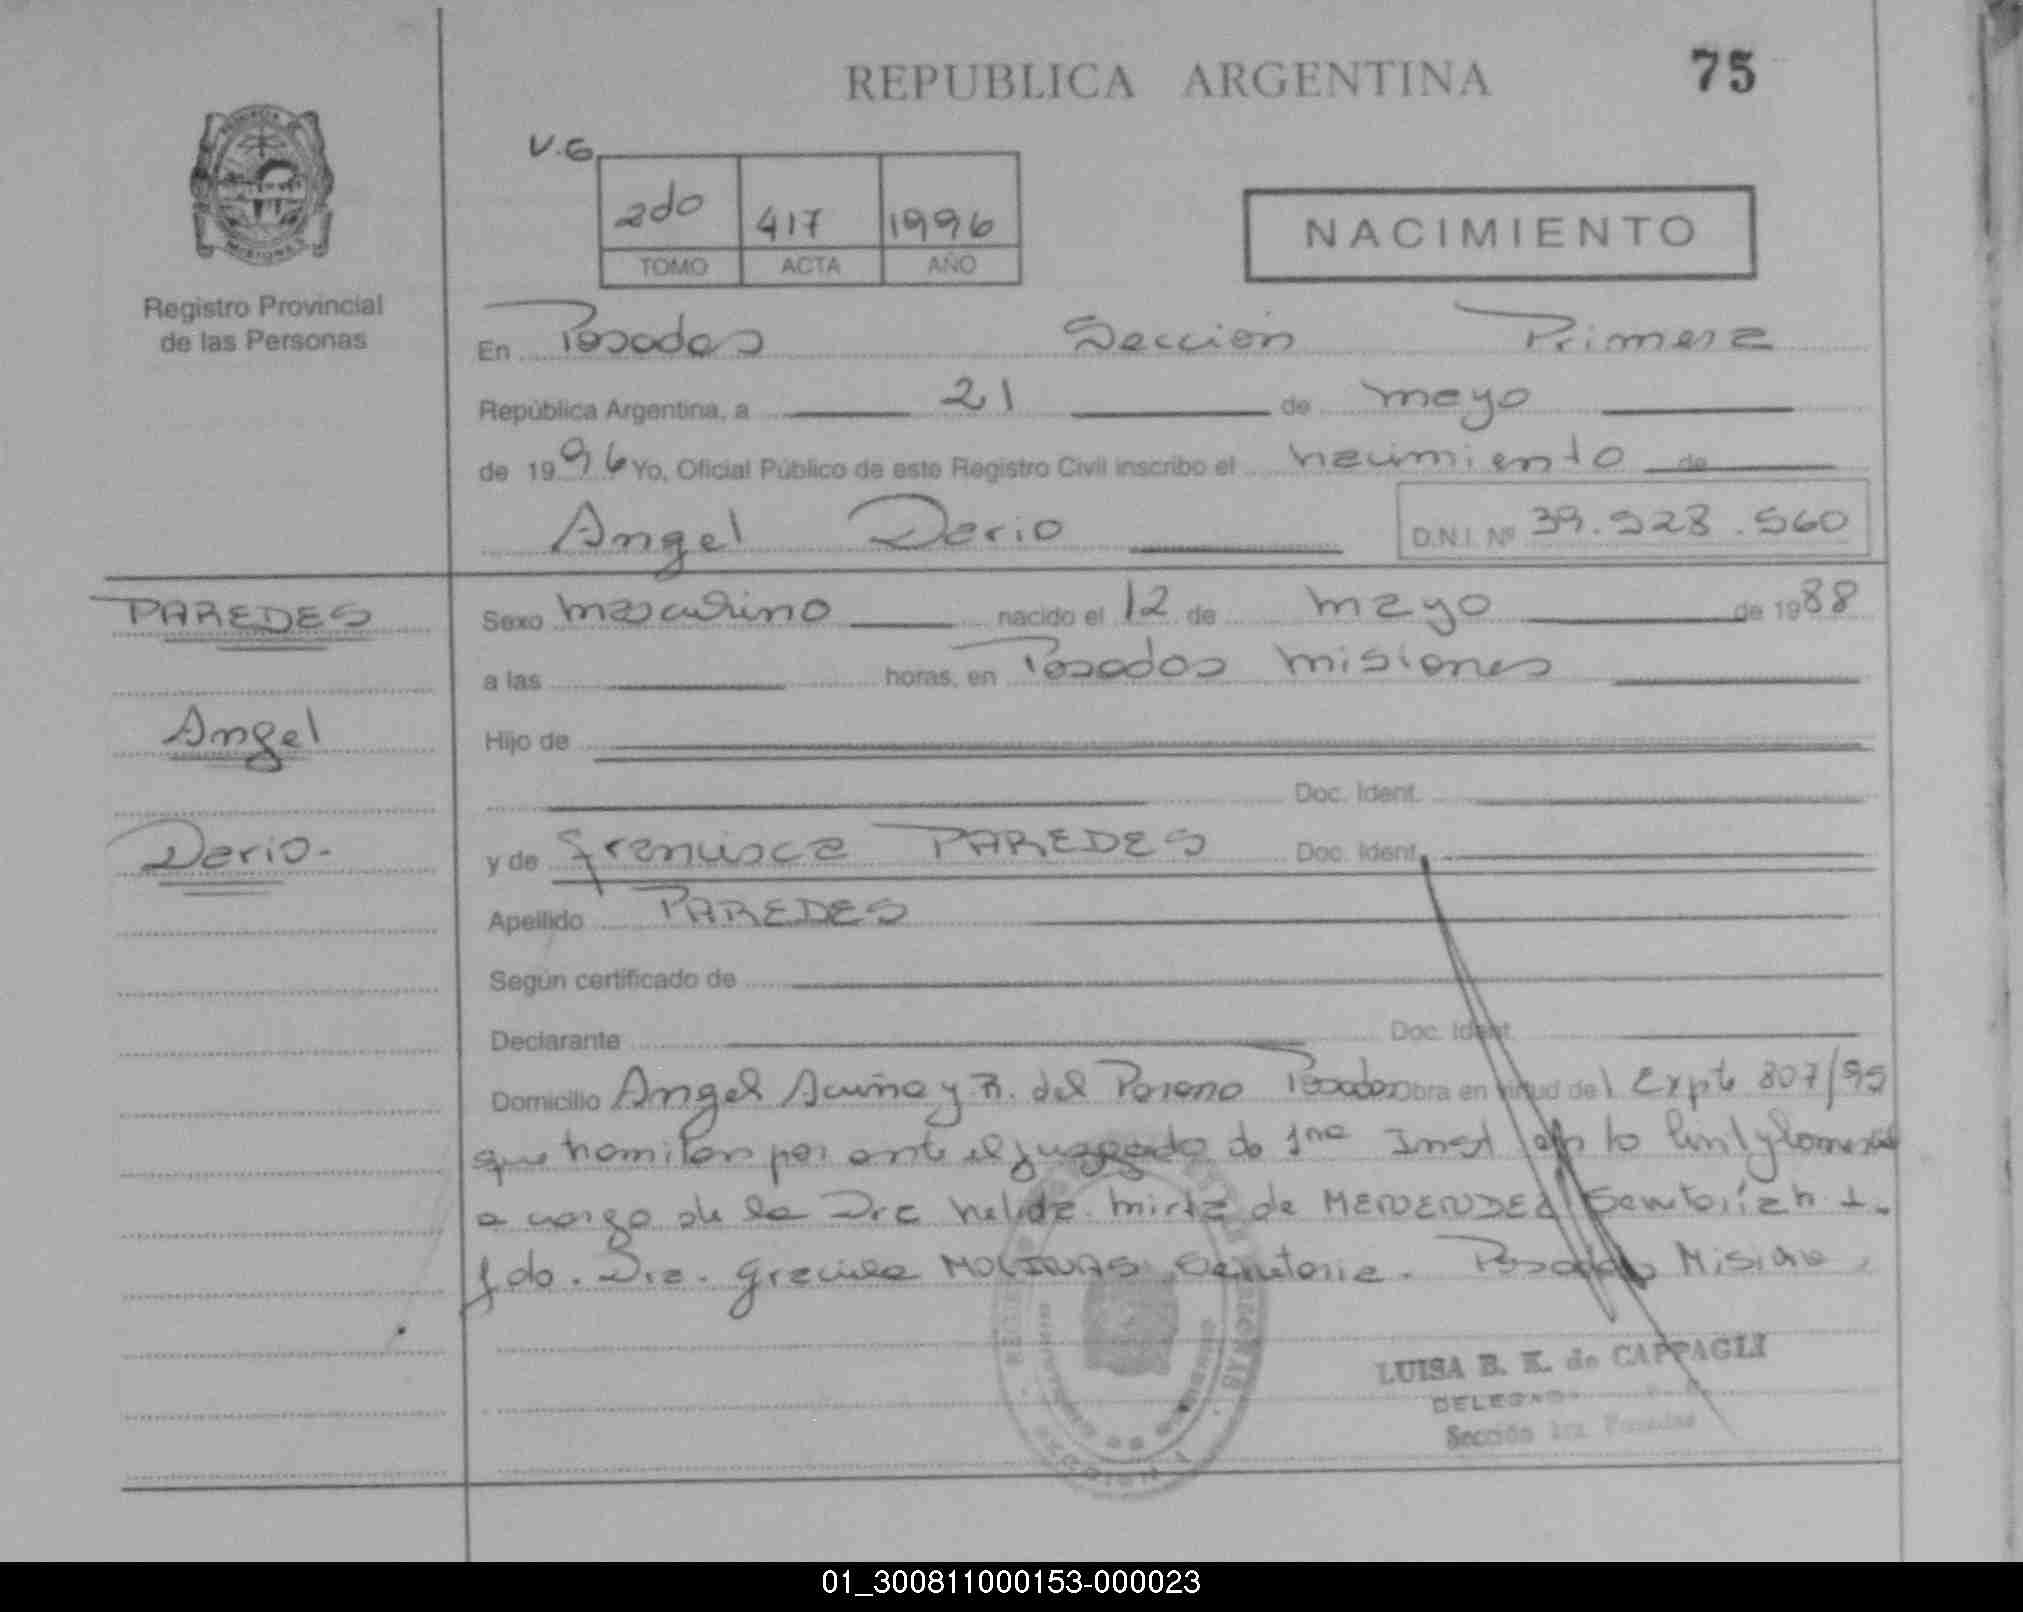 REPUBLICA ARGENTINA
75
V.G
2do 417 1996
TOMO ACTA AÑO
NACIMIENTO
Registro Provincial
de las Personas
En Posadas Sección Primera
República Argentina, a 21 de mayo
de 1996 Yo, Oficial Público de este Registro Civil inscribo el nacimiento de
Angel Dario
D.N.I. Nº 39.528.560
PAREDES
Angel
Dario.-
Sexo masculino nacido el 12 de mayo de 1988
a las horas, en Posadas misiones
Hijo de
Doc. Ident.
y de francisca PAREDES Doc. Ident.
Apellido PAREDES
Según certificado de
Declarante Doc. Ident.
Domicilio Angel Acuña y R. del Parana Posadas Obra en virtud del Expte 807/95
que tramitan por ante el juzgado de 1ra Inst en lo
a cargo de la Dra nelida mirta de MENENDEZ
fdo. Dra. graciela Secretaria. Posadas Misiones
LUISA B. K. de CAPPAGLI
Sección 1ra Posadas
01_300811000153-000023